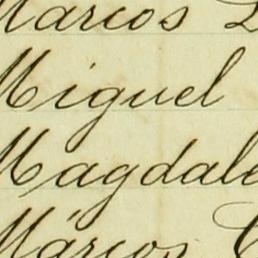 Marcos
Miguel
Magdale
Márcos